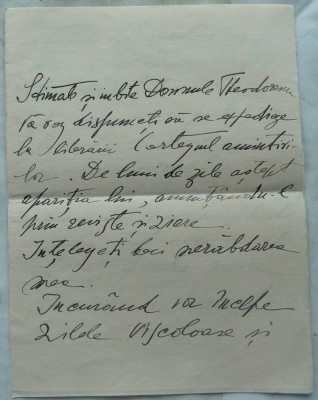 Stimate și iubite Domnule Theodorescu
Vă rog dispuneți să se expedieze
la librării Cortegiul amintiri-
lor. De luni de zile aștept
apariția lui, anunțându-l
prin reviste și ziare.
Înțelegeți deci nerăbdarea
mea.
Încurând vor începe
zilele viscoloase și